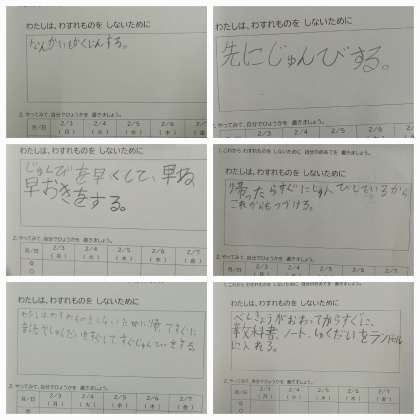 わたしは、わすれものを しないために
なんかいもかくにんする。
2. やってみて、自分でひょうかを 書きましょう。
月/日 2/3 2/4 2/5 2/6 2/7
(月) (火) (水) (木)
わたしは、わすれものを しないために
先にじゅんびする。
2. やってみて、自分でひょうかを 書きましょう。
2/3 2/4 2/5 2/6
わたしは、わすれものを しないために
じゅんびを早くして、早ね、
早おきをする。
2. やってみて、自分でひょうかを 書きましょう。
月/日 2/3 2/4 2/5 2/6 2/7
(月) (火) (水) (木) (金)
わたしは、わすれものを しないために
帰ったらすぐにじゅんびしているから
これからもつづける。
2. やってみて、自分でひょうかを 書きましょう。
月/日 2/3 2/4 2/5 2/6 2/7
(月) (火) (水) (木) (金)
わたしは、わすれものを しないために
2. やってみて、自分でひょうかを 書きましょう。
月/日 2/3 2/4 2/5 2/6 2/7
(月) (火) (水) (木) (金)
わたしは、わすれものを しないために
べんきょうがおわってからすぐに、
教科書、ノート、しゅくだいをランドセル
に入れる。
2. やってみて、自分でひょうかを 書きましょう。
月/日 2/3 2/4 2/5 2/6 2/7
(月) (火) (水) (木) (金)